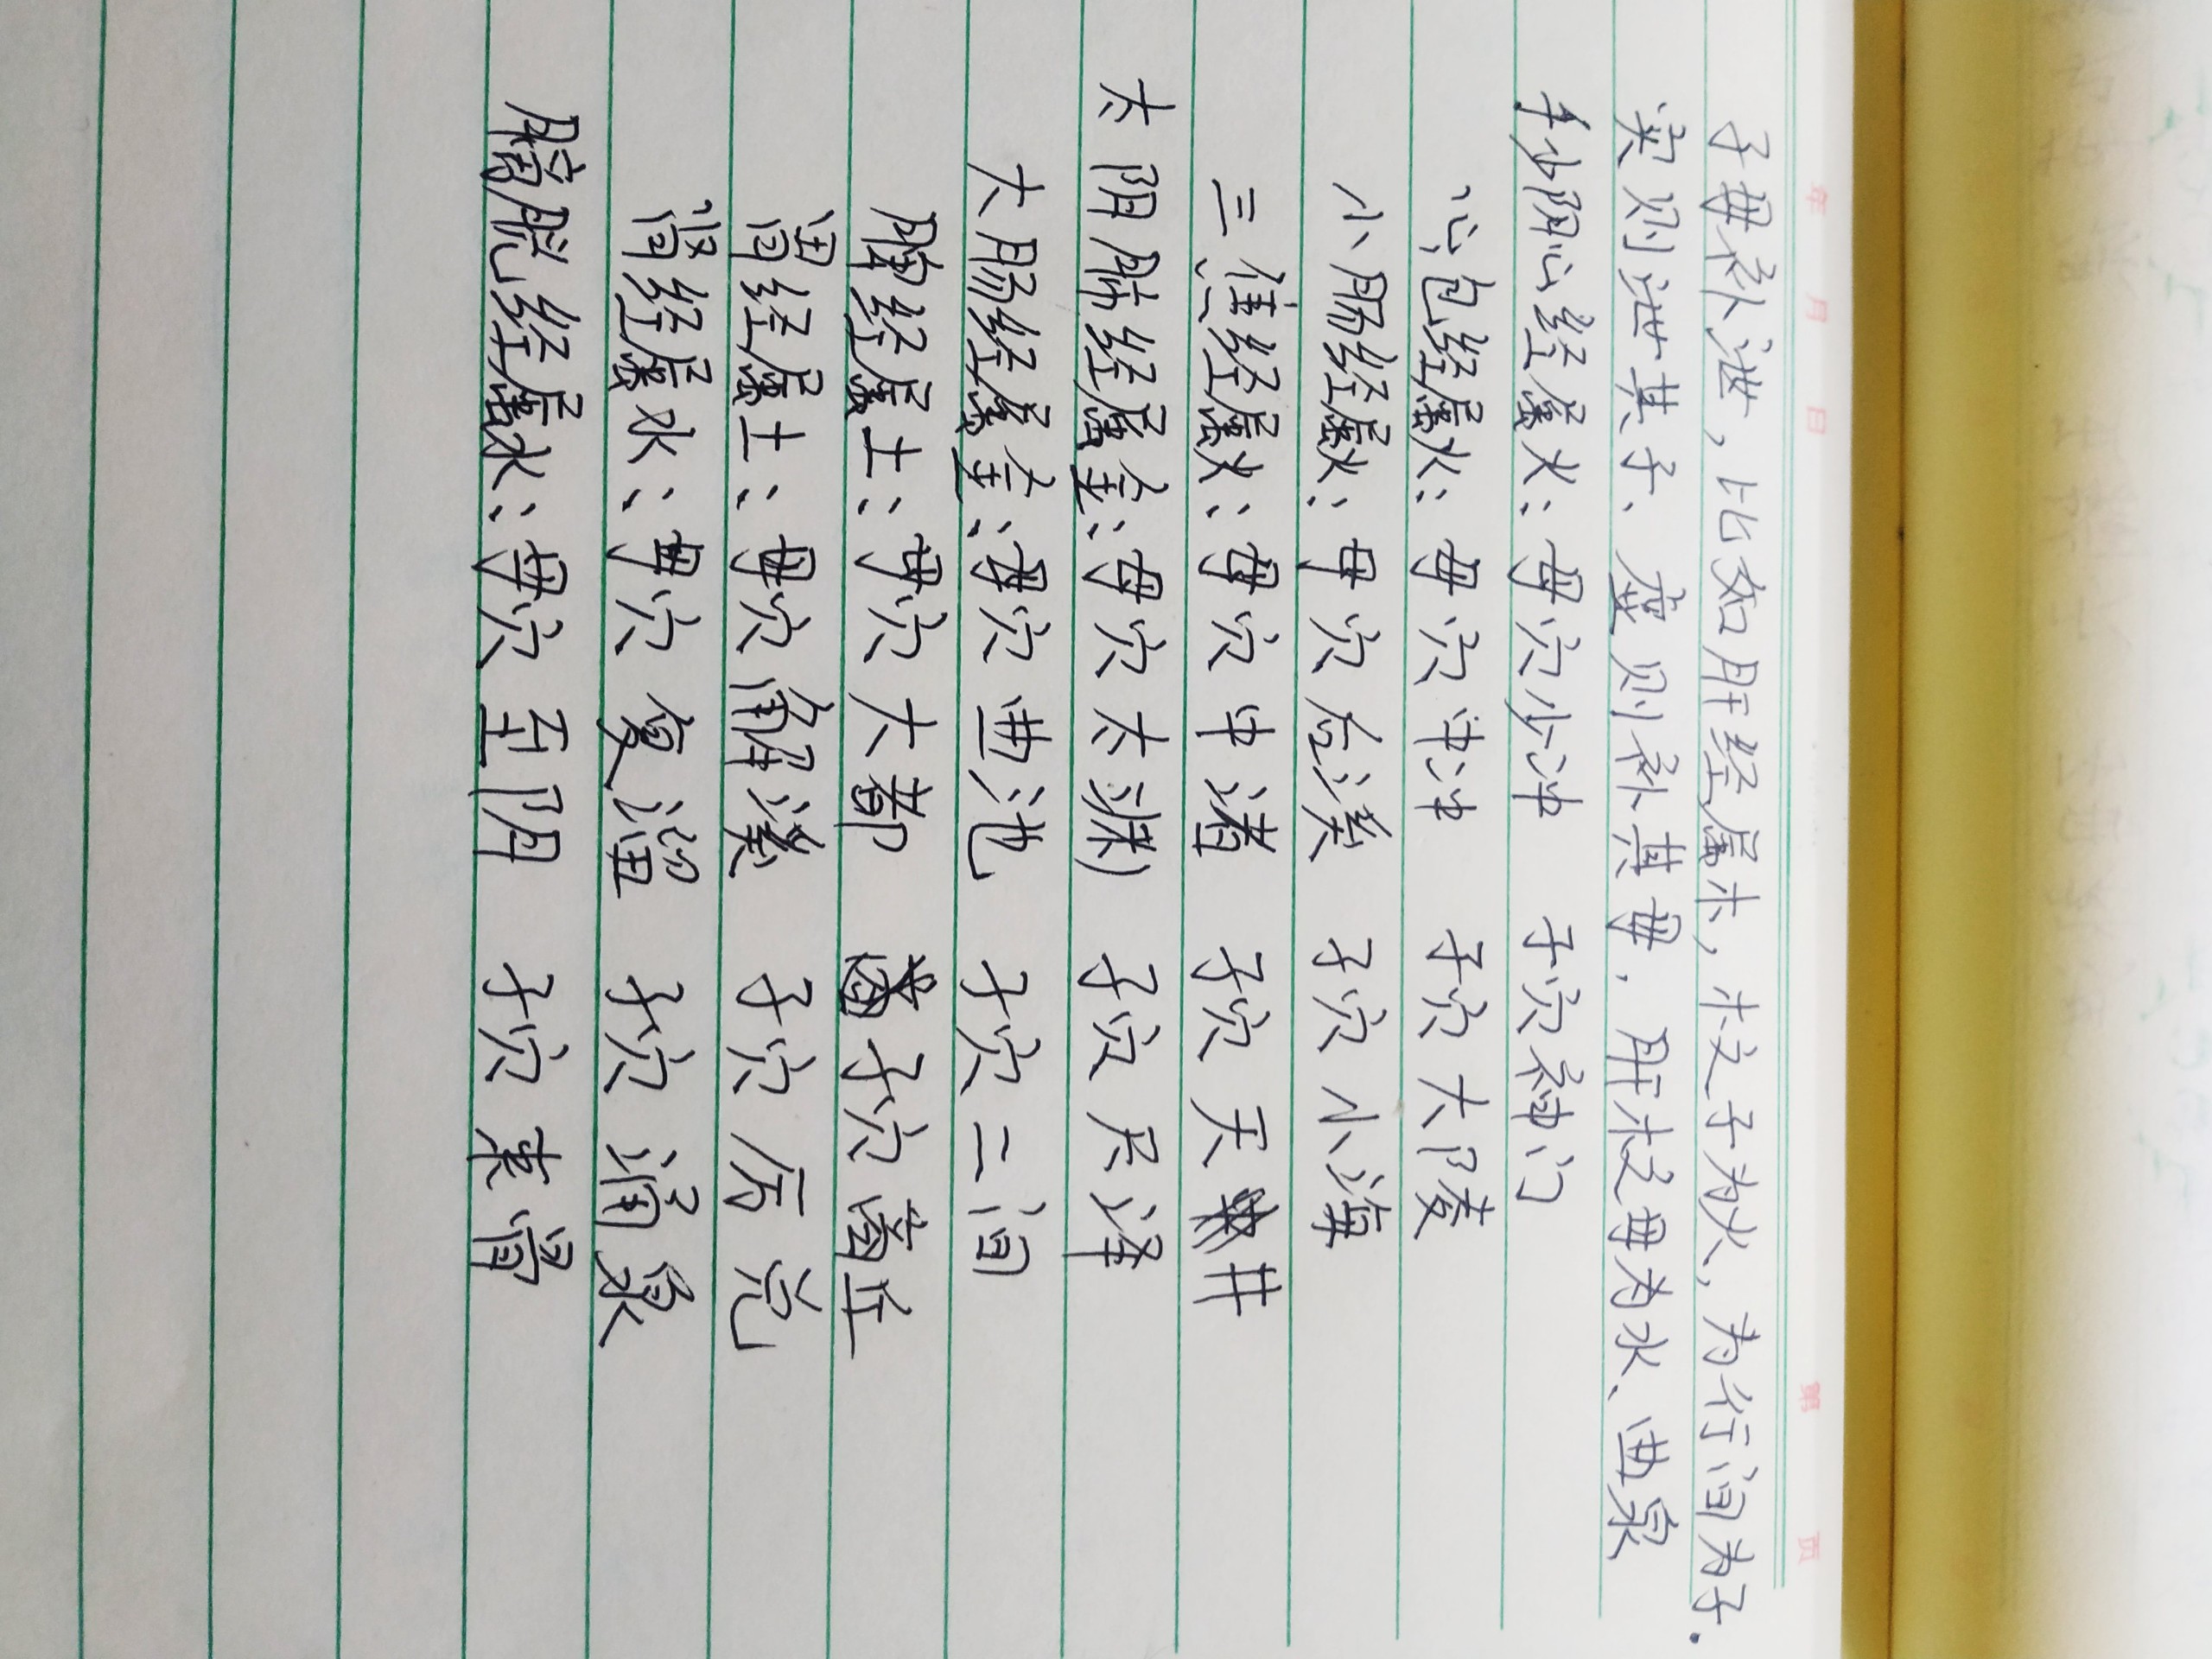 年 月 日 第 页
子母补泄，比如肝经属木，木之子为火，为行间为子.
实则泄其子. 虚则补其母. 肝木之母为水、曲泉
手少阴心经属火：母穴少冲 子穴神门
心包经属火：母穴中冲 子穴大陵
小肠经属火：母穴后溪 子穴小海
三焦经属火：母穴中渚 子穴天井
太阴肺经属金：母穴太渊 子穴尺泽
大肠经属金：母穴曲池 子穴二间
脾经属土：母穴大都 子穴商丘
胃经属土：母穴解溪 子穴厉兑
肾经属水：母穴复溜 子穴涌泉
膀胱经属水：母穴至阴 子穴束骨